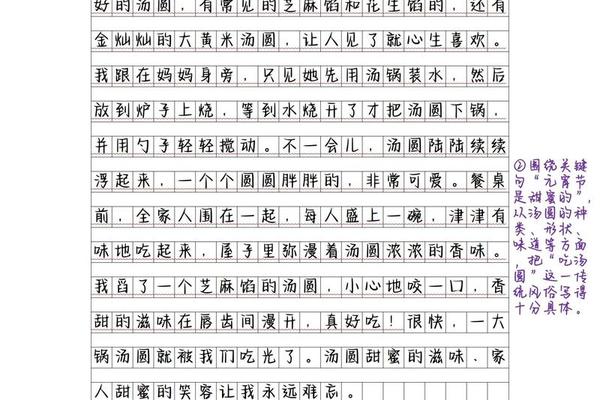 好的汤圆，有常见的芝麻馅和花生馅的，还有
金灿灿的大黄米汤圆，让人见了就心生喜欢。
我跟在妈妈身旁，只见她先用汤锅装水，然后
放到炉子上烧，等到水烧开了才把汤圆下锅，
并用勺子轻轻搅动。不一会儿，汤圆陆陆续续
浮起来，一个个圆圆胖胖的，非常可爱。餐桌
前，全家人围在一起，每人盛上一碗，津津有
味地吃起来，屋子里弥漫着汤圆浓浓的香味。
我舀了一个芝麻馅的汤圆，小心地咬一口，香
甜的滋味在唇齿间漫开，真好吃！很快，一大
锅汤圆就被我们吃光了。汤圆甜蜜的滋味、家
人甜蜜的笑容让我永远难忘。
②围绕关键
句“元宵节
是甜蜜的”，
从汤圆的种
类、形状、
味道等方面
，把“吃汤
圆”这一传
统风俗写得
十分具体。